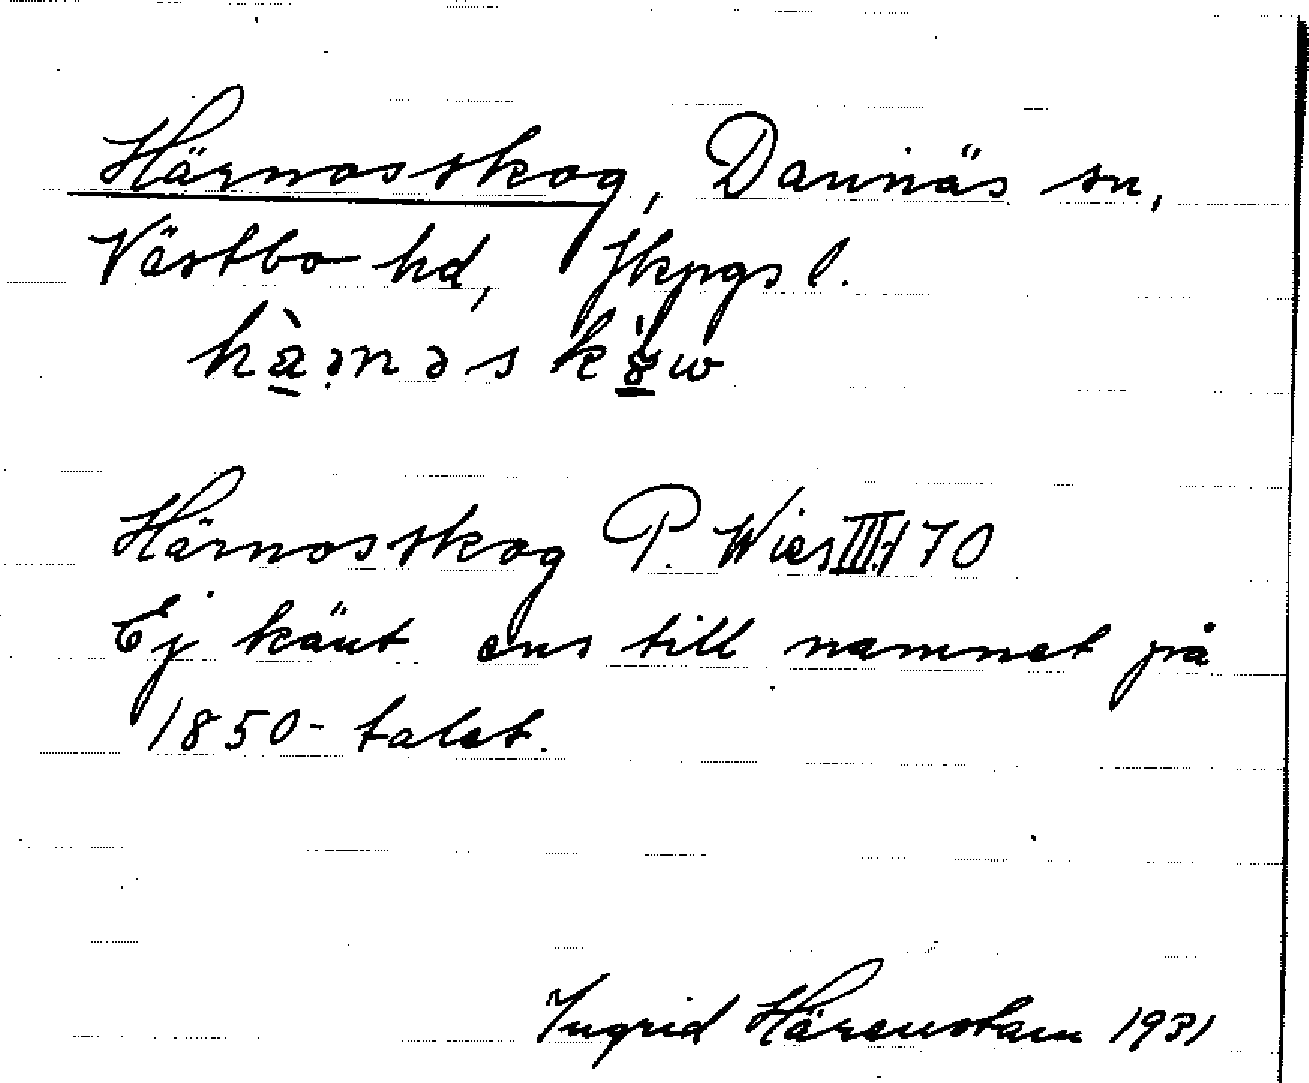 Härnosskog, Dannäs sn,
Västbo hd, Jkpgs l.
hà̱ṇəskò̱w
Härnosskog P. Wies III:1 70
Ej känt ens till namnet på
1850-talet.
Ingrid Härenstam 1931